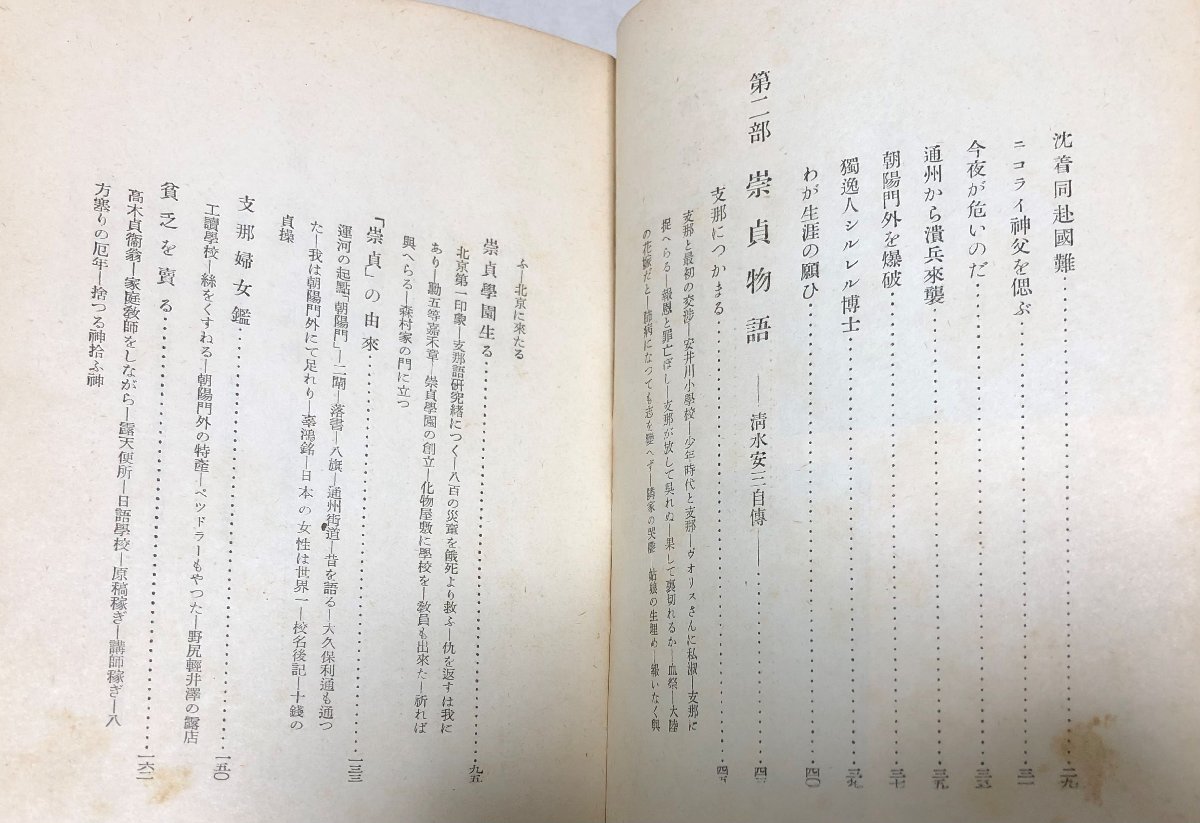 沈着同赴國難…………二九
ニコライ神父を偲ぶ…………三一
今夜が危いのだ…………三三
通州から潰兵來襲…………三五
朝陽門外を爆破…………三七
獨逸人シルレル博士…………三九
わが生涯の願ひ…………四〇
第二部 崇貞物語 ——清水安三自傳——…………四三
支那につかまる…………四五
支那と最初の交渉—安井川小學校—少年時代と支那—ヴオリスさんに私淑—支那に
捉へらる—報恩と罪亡ぼし—支那が放して呉れぬ—果して裏切れるか—血祭—大陸
の花嫁だと—肺病になつても志を變へず—隣家の哭聲 姑娘の生埋め—報いなく與
ふ—北京に來たる
崇貞學園生る…………九五
北京第一印象—支那語研究緒につく—八百の災童を餓死より救ふ—仇を返すは我に
あり—勳五等嘉禾章—崇貞學園の創立—化物屋敷に學校を—敎員も出來た—祈れば
與へらる—森村家の門に立つ
「崇貞」の由來…………一三三
運河の起點「朝陽門」—二閘—落書—八旗—通州街道—昔を語る—大久保利通も通つ
た—我は朝陽門外にて足れり—辜鴻銘—日本の女性は世界一—校名後記—十錢の
貞操
支那婦女鑑…………一五〇
工讀學校—絲をくすねる—朝陽門外の特產—ペツドラーもやつた—野尻輕井澤の露店
貧乏を賣る…………一六二
高木貞衞翁—家庭敎師をしながら—露天便所—日語學校—原稿稼ぎ—講師稼ぎ—八
方塞りの厄年—捨つる神拾ふ神